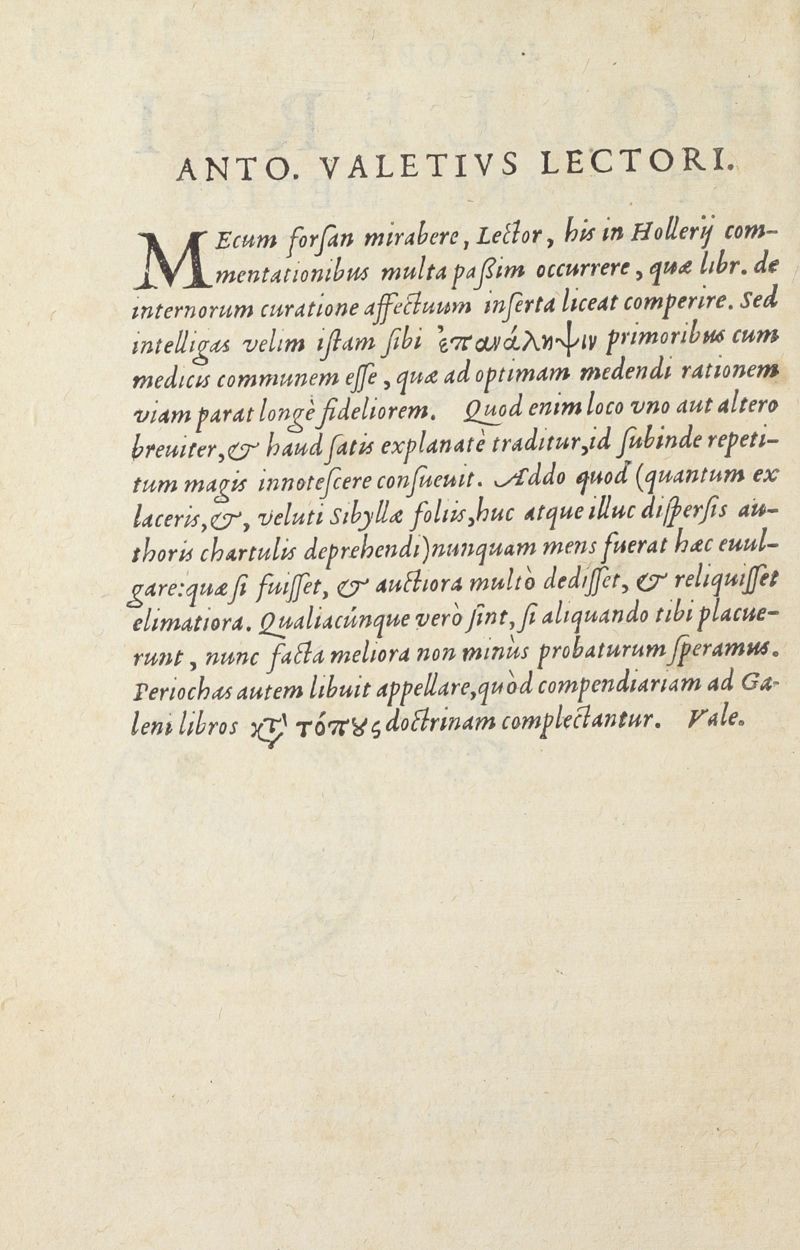 ANTO. VALETIVS LECTORI.
MEcum forſan mirabere, Lector, his in Hollerij com-
mentationibus multa paßim occurrere, quæ libr. de
internorum curatione affectuum inſerta liceat comperire. Sed
intelligas velim iſtam ſibi ἐπανάληψιν primoribus cum
medicis communem eſſe, quæ ad optimam medendi rationem
viam parat longè fideliorem. Quod enim loco vno aut altero
breuiter, & haud ſatis explanatè traditur, id ſubinde repeti-
tum magis innoteſcere conſueuit. Addo quod (quantum ex
laceris, &, veluti Sibyllæ foliis, huc atque illuc diſperſis au-
thoris chartulis deprehendi) nunquam mens fuerat hæc euul-
gare: quæ ſi fuiſſet, & auctiora multò dediſſet, & reliquiſſet
elimatiora. Qualiacúnque verò ſint, ſi aliquando tibi placue-
runt, nunc facta meliora non minùs probaturum ſperamus.
Periochas autem libuit appellare, quòd compendiariam ad Ga-
leni libros κατὰ τόπους doctrinam complectantur. Vale.